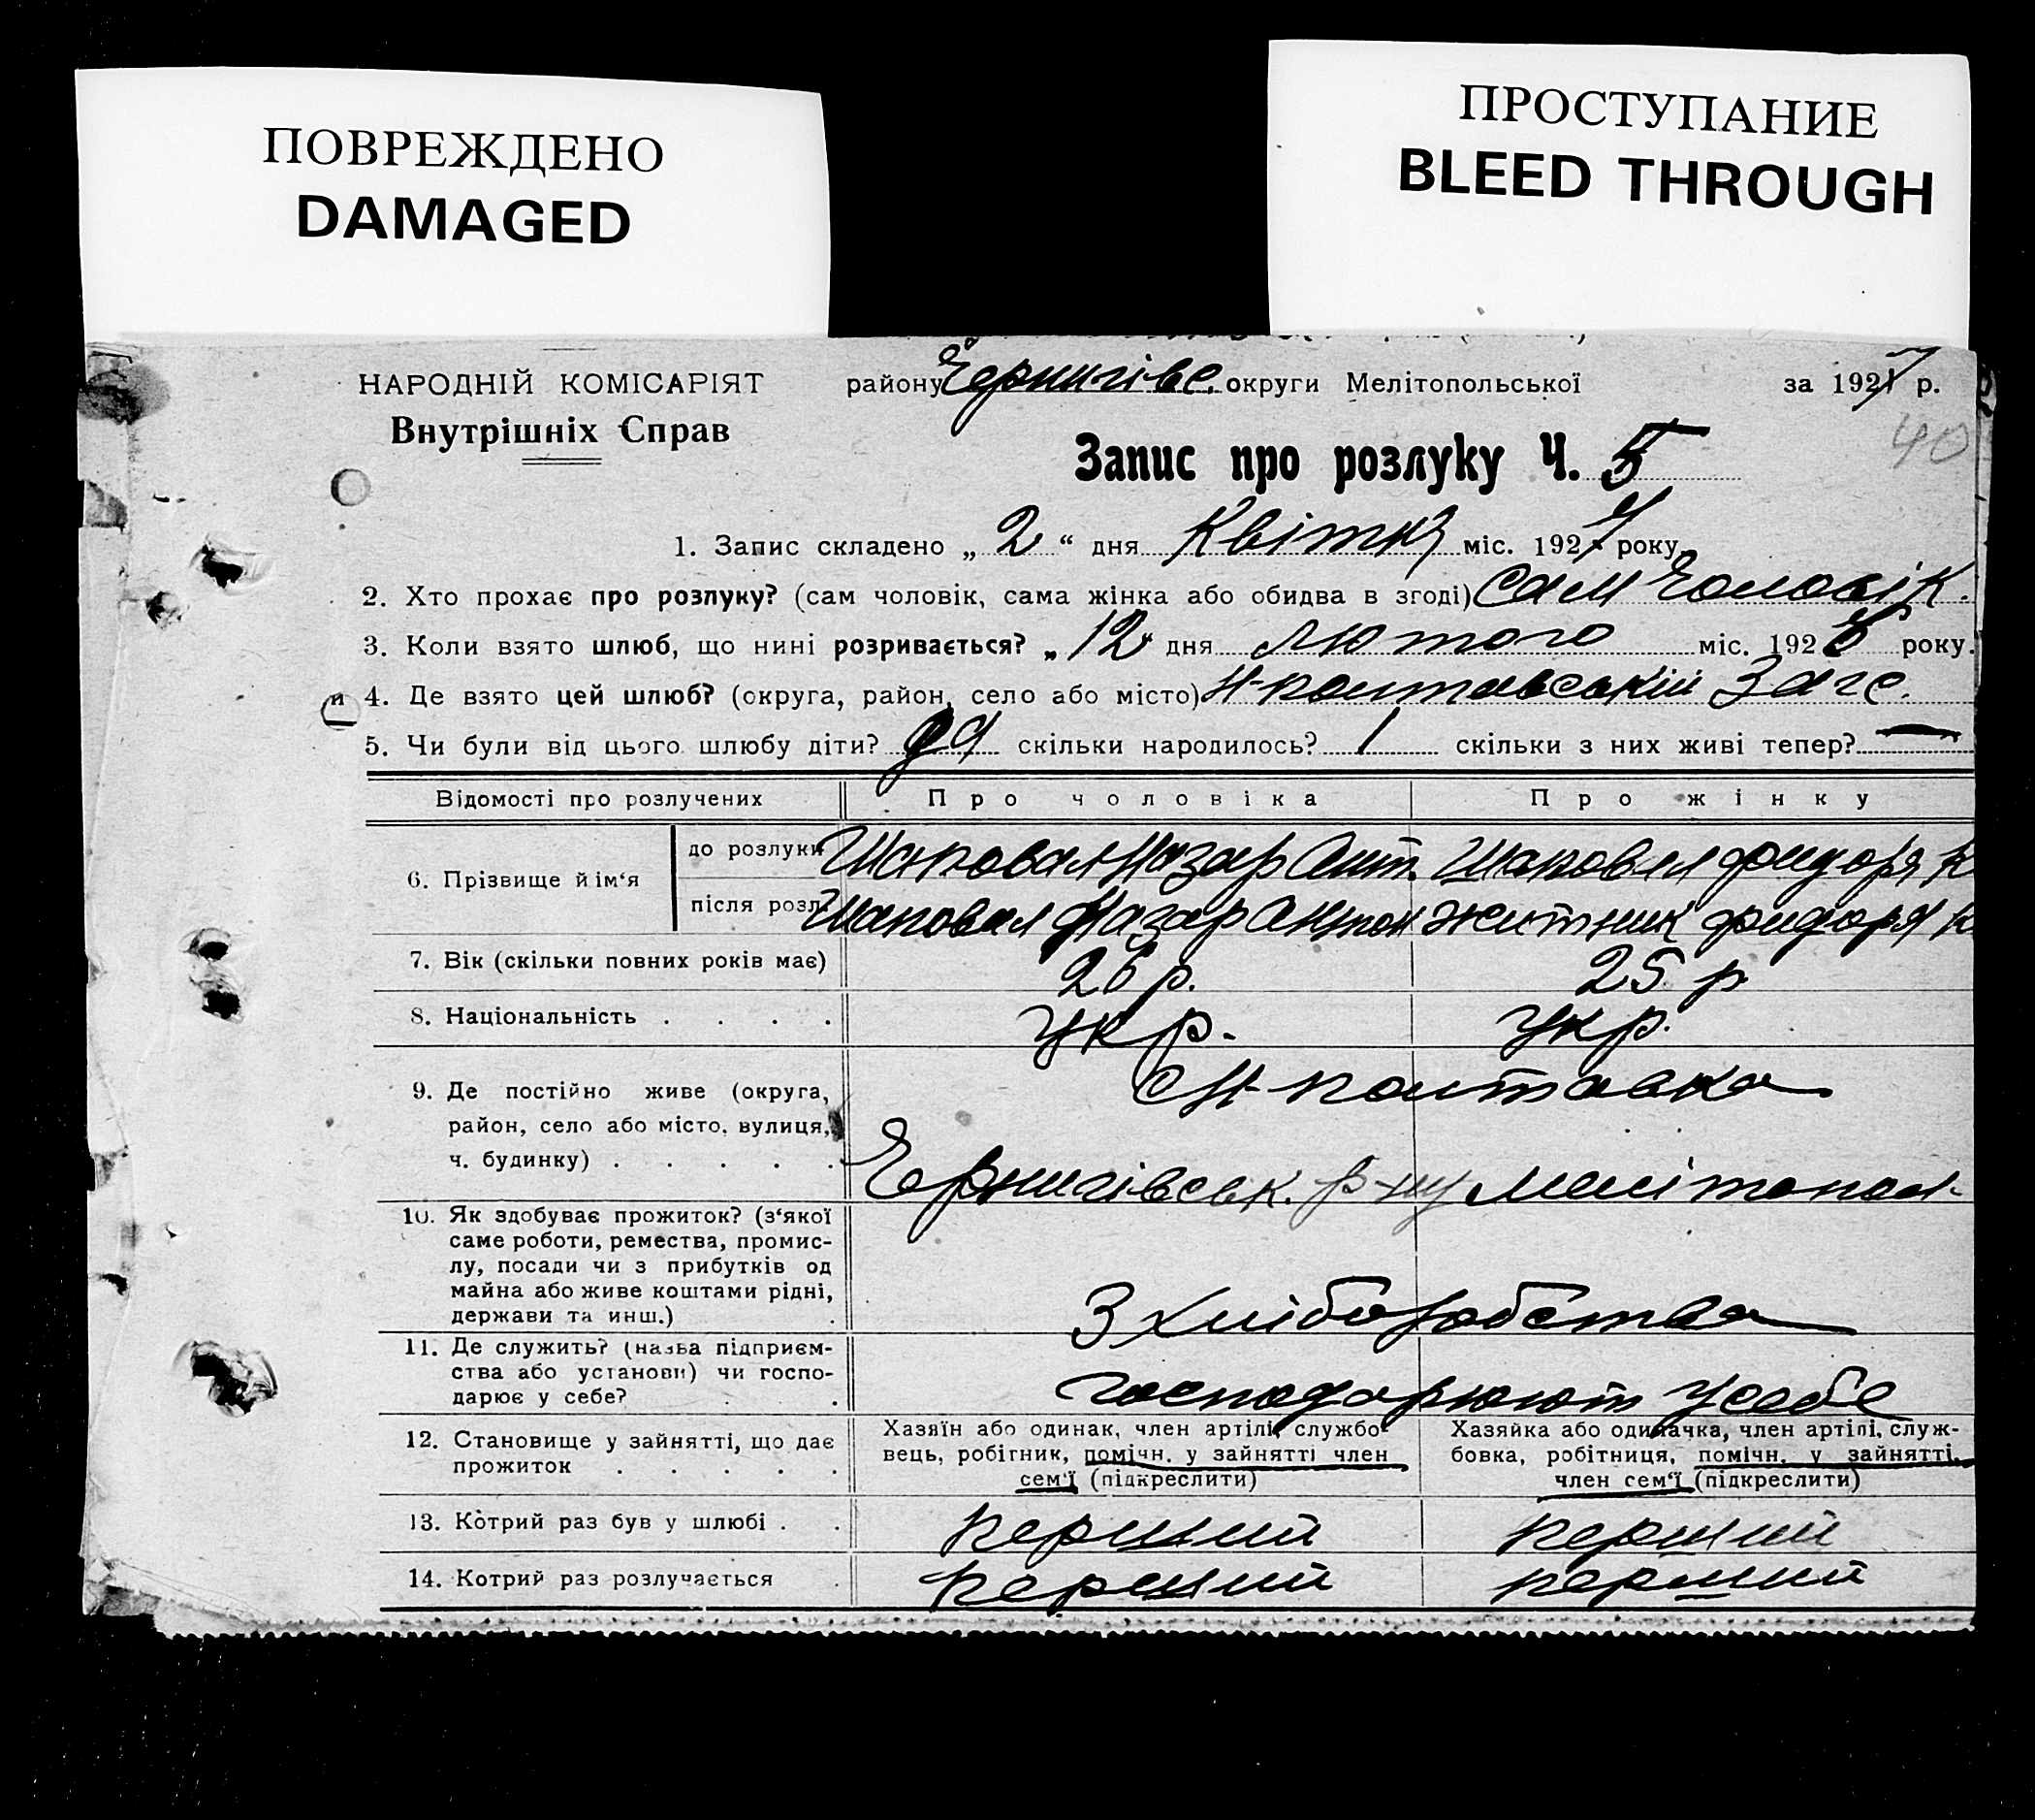 ПОВРЕЖДЕНО
DAMAGED
ПРОСТУПАНИЕ
BLEED THROUGH
НАРОДНІЙ КОМІСАРІЯТ
Внутрішніх Справ
району Чернигівс. округи Мелітопольської за 1927 р.
40
Запис про розлуку Ч. 5
1. Запис складено „ 2 “ дня Квітня міс. 1927 року
2. Хто прохає про розлуку? (сам чоловік, сама жінка або обидва в згоді) Сам Чоловік.
3. Коли взято шлюб, що нині розривається? „ 12 дня Лютого міс. 192 року.
и 4. Де взято цей шлюб? (округа, район, село або місто) Н-полтавській Загс.
5. Чи були від цього шлюбу діти? скільки народилось? 1 скільки з них живі тепер? —
Відомості про розлучених Про чоловіка Про жінку
6. Прізвище й ім‘я
до розлуки Шаповал Назар Ант. Шаповал Фидоря К
після розл. Шаповал Назар Антон Житник Фидоря К
7. Вік (скільки повних років має) 26 р. 25 р
8. Національність . . . . укр. укр.
9. Де постійно живе (округа,
район, село або місто, вулиця,
ч. будинку) . . . . .
с Н-полтавка
Чернигівськ. р-ну Мелітопол.
10. Як здобуває прожиток? (з‘якої
саме роботи, ремества, промис-
лу, посади чи з прибутків од
майна або живе коштами рідні,
держави та инш.) .
З хліборобства
11. Де служить? (назва підприєм-
ства або установи) чи госпо-
дарює у себе? . .
господарюют усебе
12. Становище у зайнятті, що дає
прожиток . . . . .
Хазяїн або одинак, член артілі, службо-
вець, робітник, помічн. у зайнятті член
сем‘ї (підкреслити)
Хазяйка або одиначка, член артілі, служ-
бовка, робітниця, помічн. у зайнятті,
член сем‘ї (підкреслити)
13. Котрий раз був у шлюбі . . перший перший
14. Котрий раз розлучається . перший перший